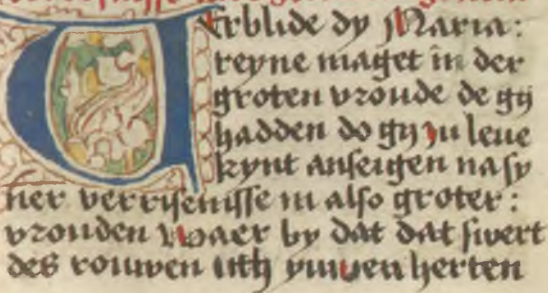 Verblide dy Maria:
reyne maget in der
groten vroude de gy
hadden do gy ju leue
kynt anseigen na sy
ner verrisenisse in also groter:
vrouden Waer by dat dat swert
des rouwen uth juwen herten